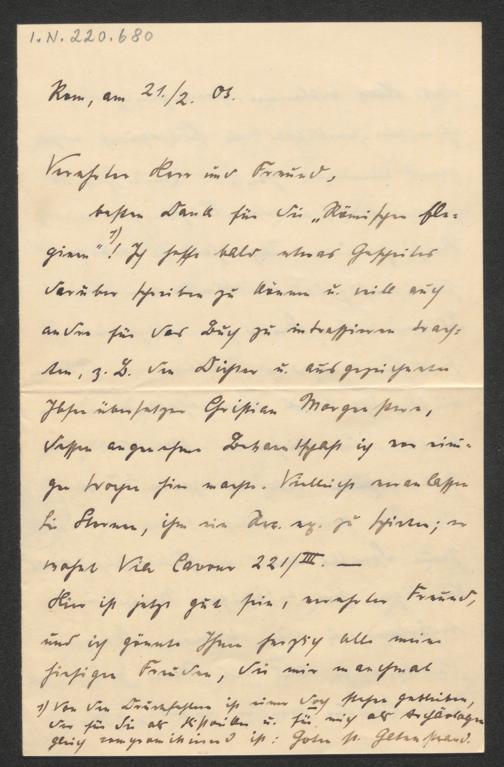 I.N. 220.680
Rom, am 21./2. 03.
Verehrter Herr und Freund,
besten Dank für die „Römischen Ele-
gieen“ 1)! Ich hoffe bald etwas Gescheites
darüber schreiben zu können u. will auch
andre für das Buch zu interessieren trach-
ten, z. B. den Dichter u. ausgezeichneten
Ibsenübersetzer Christian Morgenstern,
dessen angenehme Bekanntschaft ich vor eini-
gen Wochen hier machte. Vielleicht veranlassen
Sie Sternen, ihm ein Rez. ex. zu schicken; er
wohnt Via Cavour 221/III. —
Hier ist jetzt gut sein, verehrter Freund,
und ich gönnte Ihnen herzlich alle meine
hiesigen Freuden, die mir manchmal
1) Von den Druckfehlern ist einer doch stehen geblieben,
der für Sie als Historiker u. für mich als Archäologen
gleich compromittirend ist: Goten st.